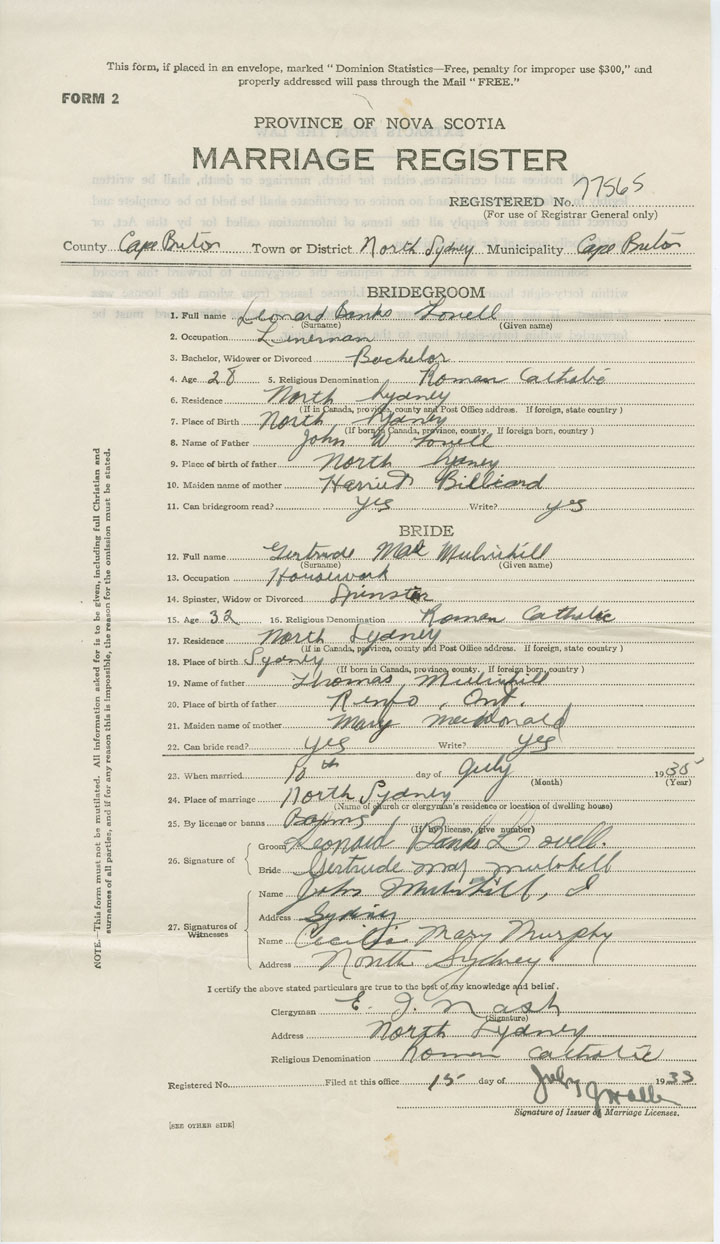 This form, if placed in an envelope, marked "Dominion Statistics—Free, penalty for improper use $300," and
properly addressed will pass through the Mail "FREE."
FORM 2
PROVINCE OF NOVA SCOTIA
MARRIAGE REGISTER
REGISTERED No. 77565
(For use of Registrar General only)
County Cape Breton Town or District North Sydney Municipality Cape Breton
BRIDEGROOM
1. Full name Leonard Banks Lovell
(Surname) (Given name)
2. Occupation Linerman
3. Bachelor, Widower or Divorced Bachelor
4. Age 28 5. Religious Denomination Roman Catholic
6. Residence North Sydney
(If in Canada, province, county and Post Office address. If foreign, state country)
7. Place of Birth North Sydney
(If born in Canada, province, county. If foreign born, country)
8. Name of Father John W Lovell
9. Place of birth of father North Sydney
10. Maiden name of mother Harriet Billiard
11. Can bridegroom read? yes Write? yes
BRIDE
12. Full name Gertrude Mae Mulvihill
(Surname) (Given name)
13. Occupation Housework
14. Spinster, Widow or Divorced Spinster
15. Age 32 16. Religious Denomination Roman Catholic
17. Residence North Sydney
(If in Canada, province, county and Post Office address. If foreign, state country)
18. Place of birth Sydney
(If born in Canada, province, county. If foreign born, country)
19. Name of father Thomas Mulvihill
20. Place of birth of father Ont.
21. Maiden name of mother Mary macdonald
22. Can bride read? yes Write? yes
23. When married 10th day of July 1935
(Month) (Year)
24. Place of marriage North Sydney
(Name of church or clergyman's residence or location of dwelling house)
25. By license or banns Banns
(If by license, give number)
26. Signature of
Groom Leonard Banks Lovell.
Bride Gertrude may mulvihill
27. Signatures of Witnesses
Name John Mulvihill,
Address Sydney
Name Cecilia Mary Murphy
Address North Sydney
I certify the above stated particulars are true to the best of my knowledge and belief.
Clergyman E. J. Nash
(Signature)
Address North Sydney
Religious Denomination Roman Catholic
Registered No. Filed at this office 15 day of July 1935
Signature of Issuer of Marriage Licenses.
[SEE OTHER SIDE]
NOTE.—This form must not be mutilated. All information asked for is to be given, including full Christian and
surnames of all parties, and if for any reason this is impossible, the reason for the omission must be stated.